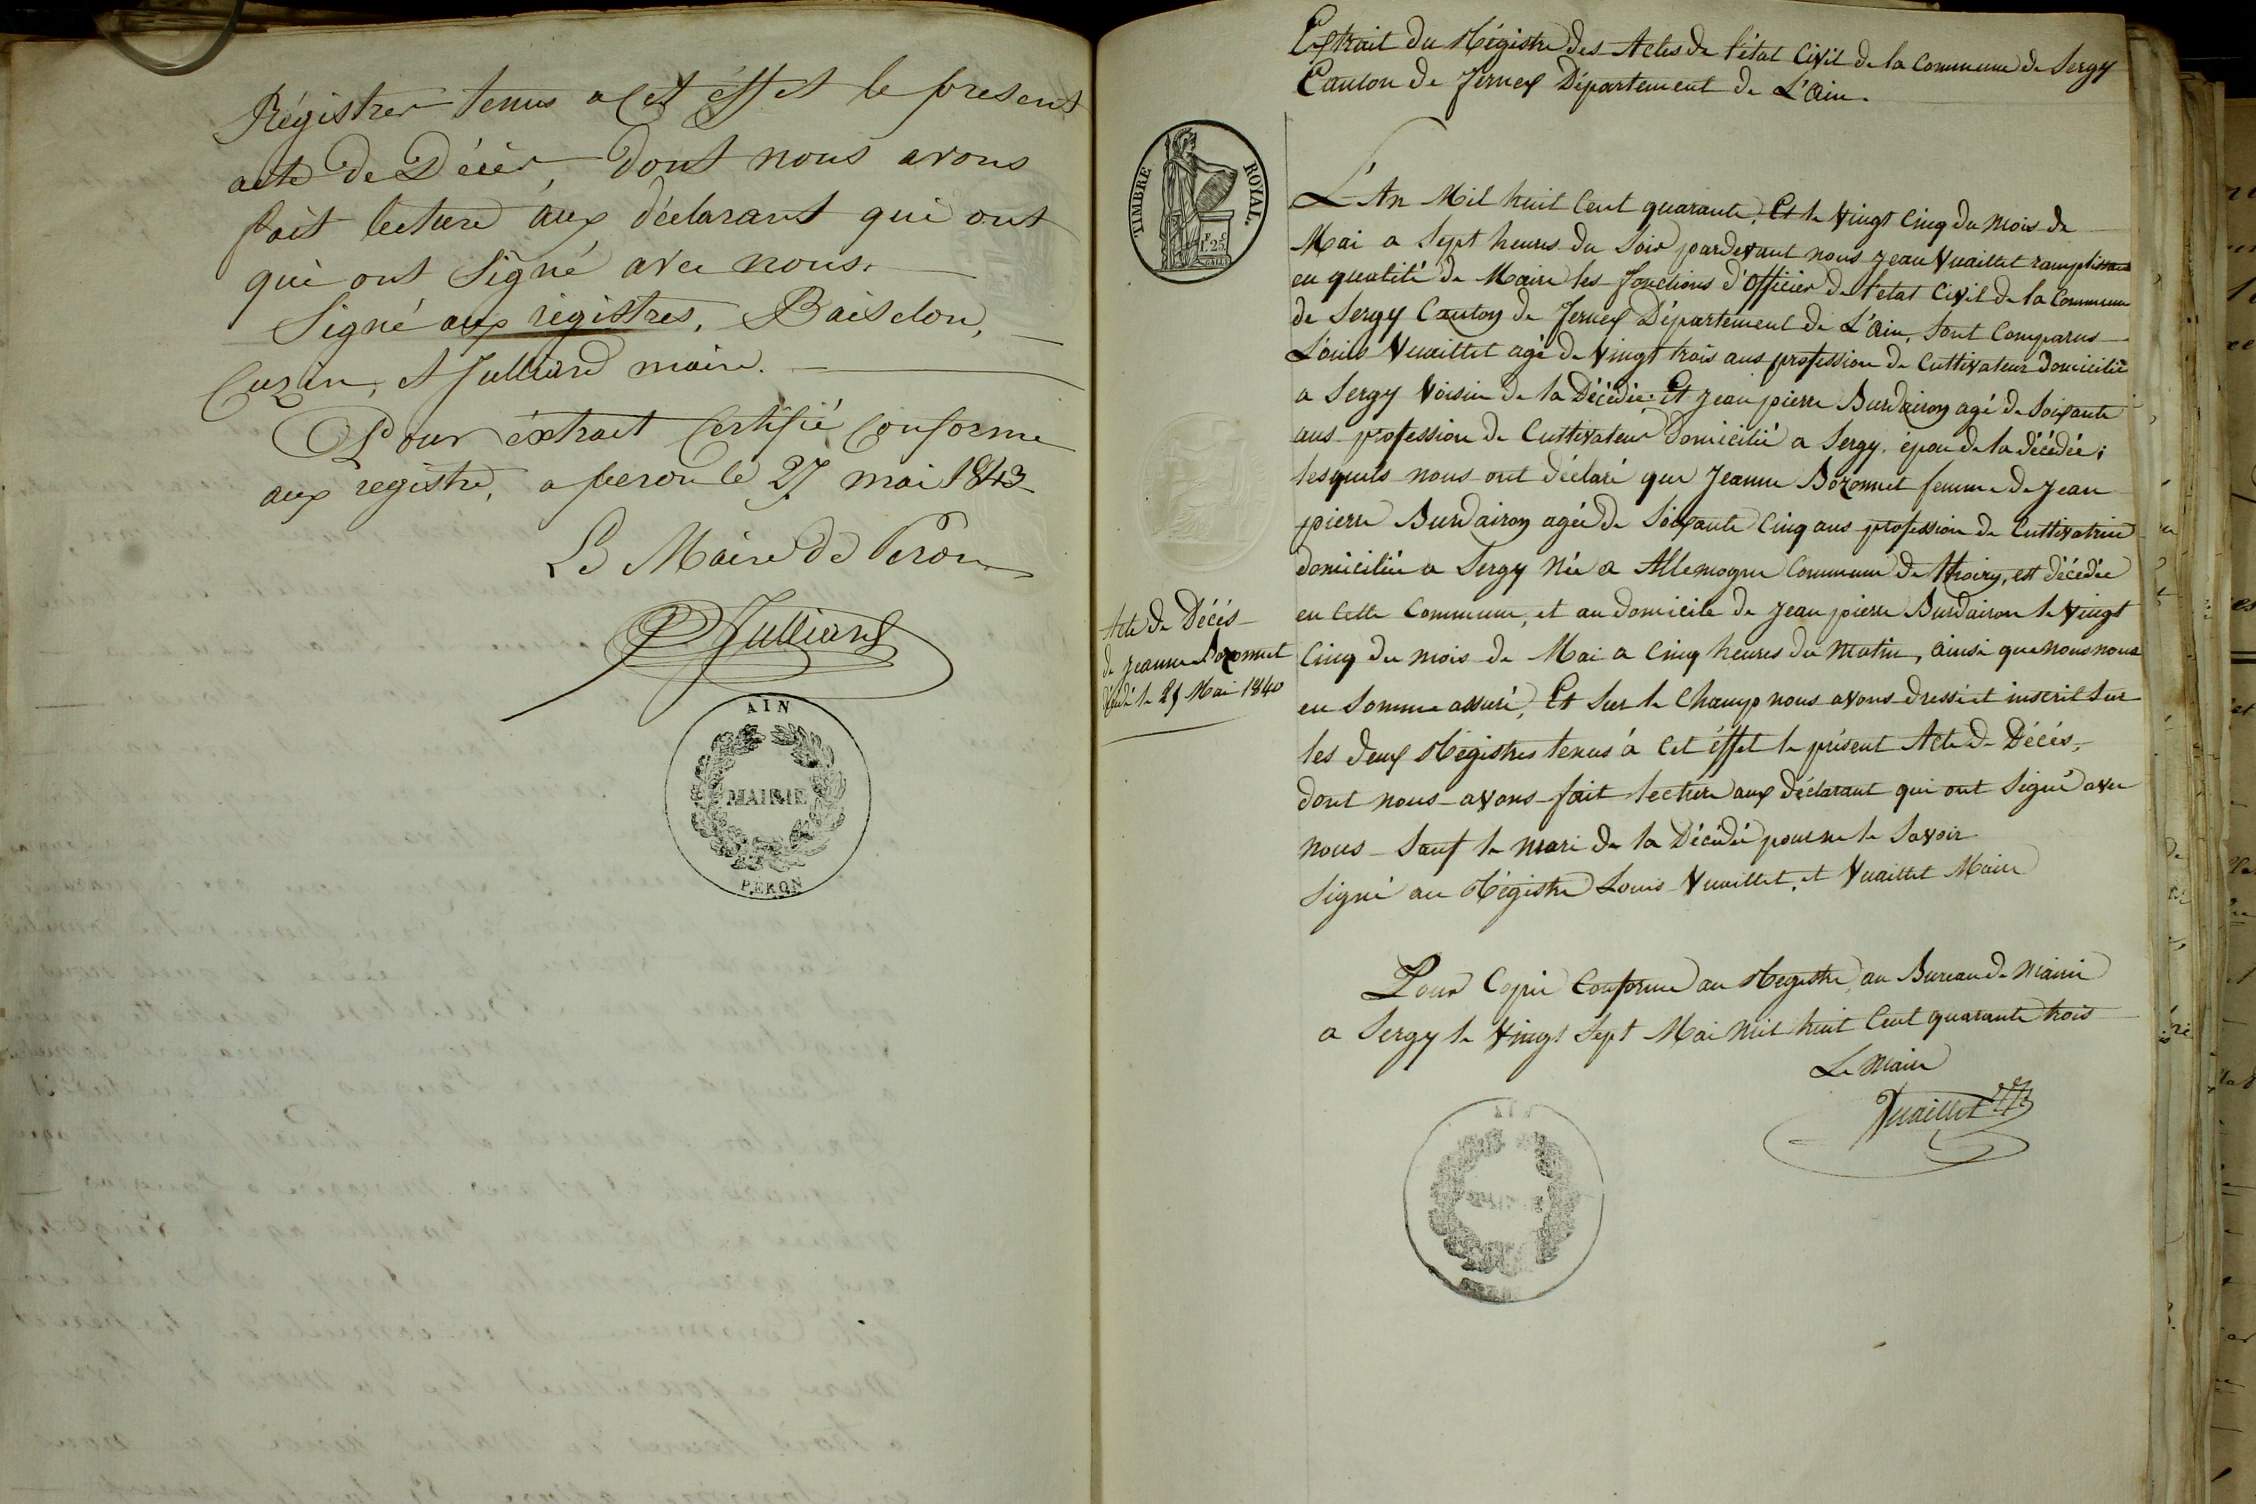 Régistres tenus a cet éffet le present
acte de Décès, dont nous avons
fait lecture aux déclarant qui ont
qui ont Signé avec nous.
Signé aux régistres, Baisdon,
Cuzin, et Julliard maire.
Pour éxtrait Certifié Conforme
aux registre, a peron le 27 mai 1843
Le Maire de Péron
Julliard
AIN
MAIRIE
PÉRON
Extrait du Régistre des Actes de l'état Civil de la Commune de Sergy
Canton de Ferney Département de L'Ain.
TIMBRE ROYAL
F. C.
1.25
L'An Mil huit Cent quarante, Et le Vingt Cinq du Mois de
Mai a Sept heures du Soir pardevant nous Jean Vuaillet ramplissant
en quatité de Maire les fonctions d'Officier de l'état Civil de la Commune
de Sergy Canton de Ferney Département de L'Ain, Sont Comparus
Louis Vuaillet agé de Vingt trois ans profession de Cultivateur Domicilié
a Sergy Voisin de la Décédée: Et Jean pierre Burdairon agé de Soixante
ans profession de Cultivateur Domicilié a Sergy, épou de la décédée;
lesquels nous ont déclaré que Jeanne Bozonnet femme de Jean
pierre Burdairon agée de Soixante Cinq ans profession de Cultivatrice
domiciliée a Sergy Née a Allemogne Commune de Thoiry, est décédée
en Cette Commune, et au domicile de Jean pierre Burdairon le Vingt
Cinq du mois de Mai a Cinq heures du Matin, ainsi que nous nous
en Somme assuré, Et Sur le Champ nous avons dressé et inscrit Sur
les deux Régistres tenus a Cet éffet le présent Acte de Décés,
dont nous avons fait lecture aux déclarant qui ont Signé avec
nous Sauf le mari de la Décédée pour ne le Savoir
Signé au Régistre Louis Vuaillet, et Vuaillet Maire
Acte de Décés
de Jeanne Bozonnet
décédé le 25 Mai 1840
Pour Copie Conforme au Régistre au Bureau de Mairie
a Sergy le Vingt Sept Mai Mil huit Cent quarante trois
Le Maire
Vuaillet
AIN